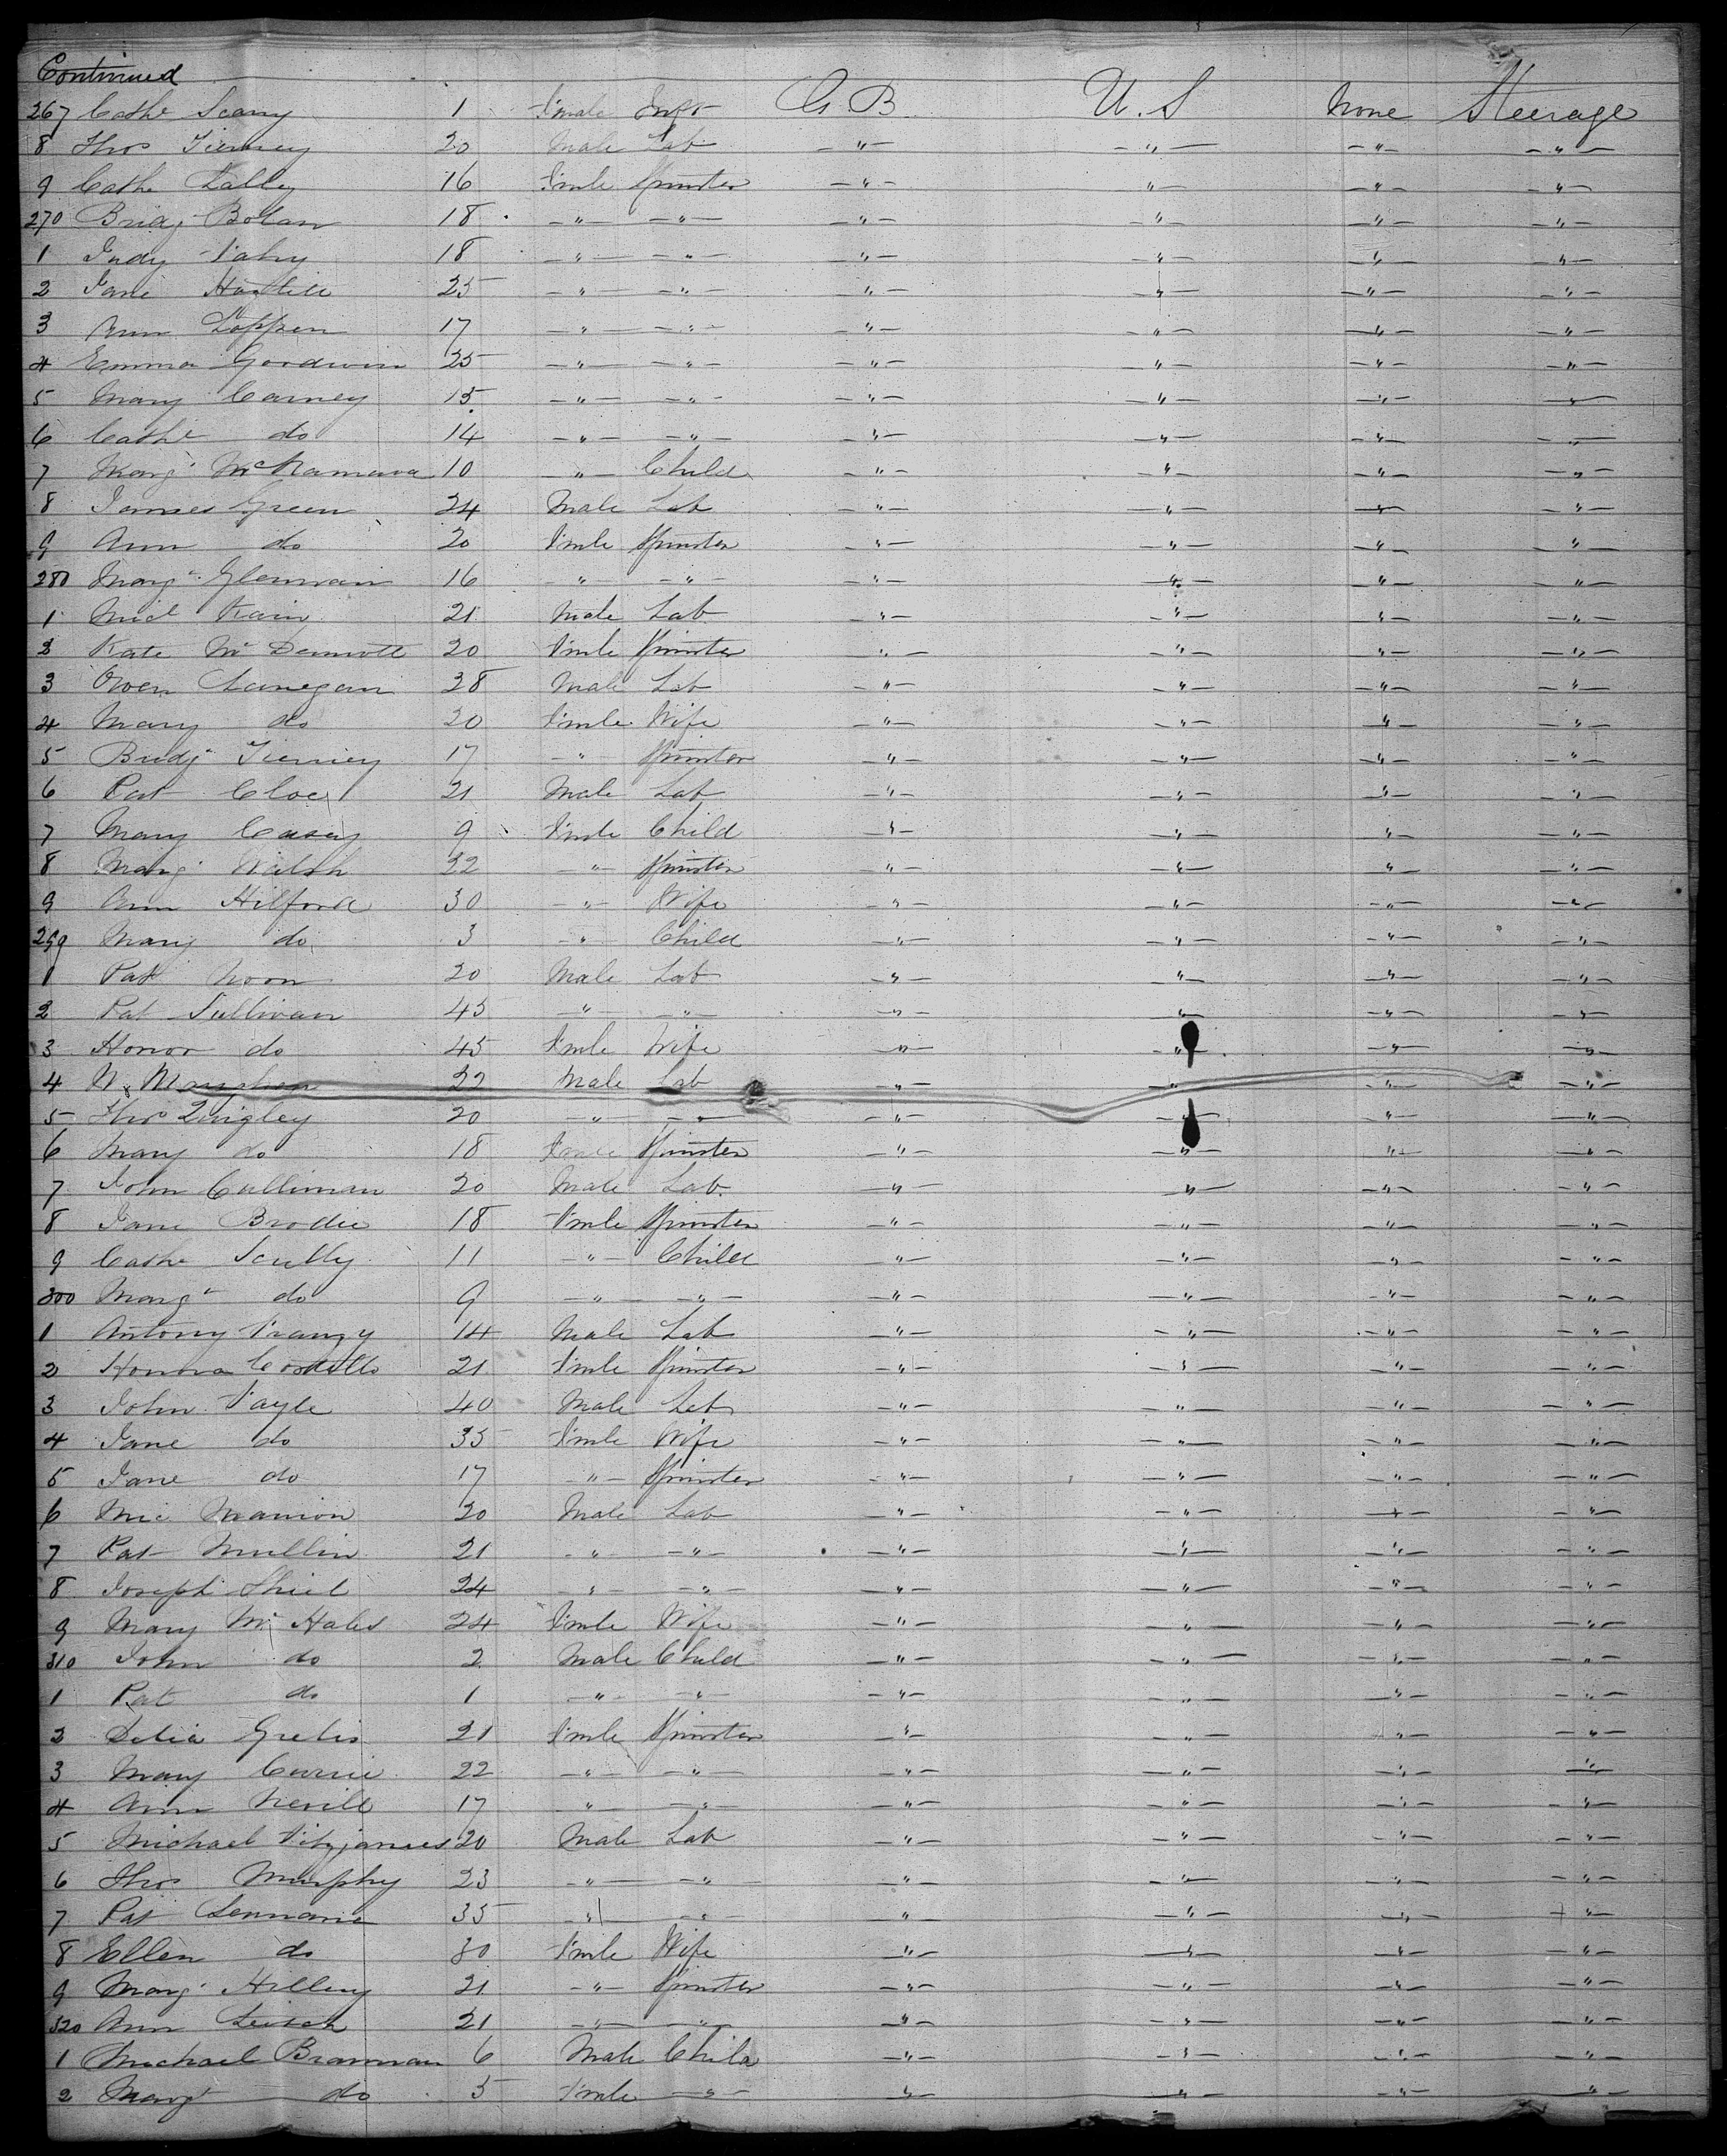 Continued
267 Cathe Scany 1 Female Inft G. B. U. S None Steerage
8 Thos Tierney 20 Male Lab —"— —"— —"— —"—
9 Cathe Lally 16 Fmle Spinster —"— " —"— "
270 Bridj Bolan 18 —"— —"— —"— " " —"—
1 Judy Fahy 18 —"— —"— —"— —"— " —"—
2 Jane 25 —"— —"— —"— " —"— —"—
3 Ann Loppen 17 —"— —"— —"— —"— —"— —"—
4 Emma Goodwin 25 —"— —"— —"— —"— —"— —"—
5 Mary Carney 15 —"— —"— —"— —"— —"— —"—
6 Cathe do 14 —"— —"— —"— —"— —"— —"—
7 Marg McNamara 10 —"— Child —"— —"— —"— —"—
8 James Green 24 Male Lab —"— —"— —"— —"—
9 Ann do 20 Fmle Spinster —"— —"— —"— "
280 Margt Glennain 16 —"— —"— —"— —"— —"— —"—
1 Micl Kain 21 Male Lab —"— "— —"— —"—
2 Kate McDermott 20 Fmle Spinster —"— —"— —"— —"—
3 Owen Lanegan 28 Male Lab —"— —"— —"— —"—
4 Mary do 20 Fmle Wife —"— —"— —"— —"—
5 Bridj Tierney 17 —"— Spinster —"— —"— —"— "
6 Pat Cloe 21 Male Lab —"— —"— —"— —"—
7 Mary Casey 9 Fmle Child —"— —"— —"— —"—
8 Marg Walsh 22 —"— Spinster —"— —"— —"— —"—
9 Ann Hilford 30 —"— Wife —"— —"— —"— —"—
299 Mary do 3 —"— Child —"— —"— —"— —"—
1 Pat Noon 20 Male Lab —"— —"— —"— —"—
2 Pat Sullivan 45 —"— —"— —"— —"— —"— —"—
3 Honor do 45 Fmle Wife —"— —"— —"— —"—
4 22 Male Lab —"— —"— —"— —"—
5 Thos Quigley 20 —"— —"— —"— —"— —"— —"—
6 Mary do 18 Fmle Spinster —"— —"— —"— —"—
7 John Cullinan 20 Male Lab —"— —"— —"— —"—
8 Jane Brodie 18 Fmle Spinster —"— —"— —"— —"—
9 Cathe Scully 11 —"— Child —"— —"— —"— —"—
300 Margt do 9 —"— —"— —"— —"— —"— —"—
1 Antony 14 Male Lab —"— —"— —"— —"—
2 Honora Costello 21 Fmle Spinster —"— —"— —"— —"—
3 John Fayle 40 Male Lab —"— —"— —"— —"—
4 Jane do 35 Fmle Wife —"— —"— —"— —"—
5 Jane do 17 —"— Spinster —"— —"— —"— —"—
6 Mic Manion 20 Male Lab —"— —"— —"— —"—
7 Pat Mullin 21 —"— —"— —"— —"— —"— —"—
8 Joseph Shiel 24 —"— —"— —"— —"— —"— —"—
9 Mary McHales 24 Fmle Wife —"— —"— —"— —"—
310 John do 2 Male Child —"— —"— —"— —"—
1 Pat do 1 —"— —"— —"— —"— —"— —"—
2 Delia Grelis 21 Fmle Spinster —"— —"— —"— —"—
3 Mary Currie 22 —"— —"— —"— —"— —"— —"—
4 Ann Nevill 17 —"— —"— —"— —"— —"— —"—
5 Michael Fitzjames 20 Male Lab —"— —"— —"— —"—
6 Thos Murphy 23 —"— —"— —"— —"— —"— —"—
7 Pat Lennane 35 —"— —"— —"— —"— —"— —"—
8 Ellen do 30 Fmle Wife —"— —"— —"— —"—
9 Marg Hilley 21 —"— Spinster —"— —"— —"— —"—
320 Ann 21 —"— —"— —"— —"— —"— —"—
1 Michael Brannan 6 Male Child —"— —"— —"— —"—
2 Margt do 5 Fmle —"— —"— —"— —"— —"—